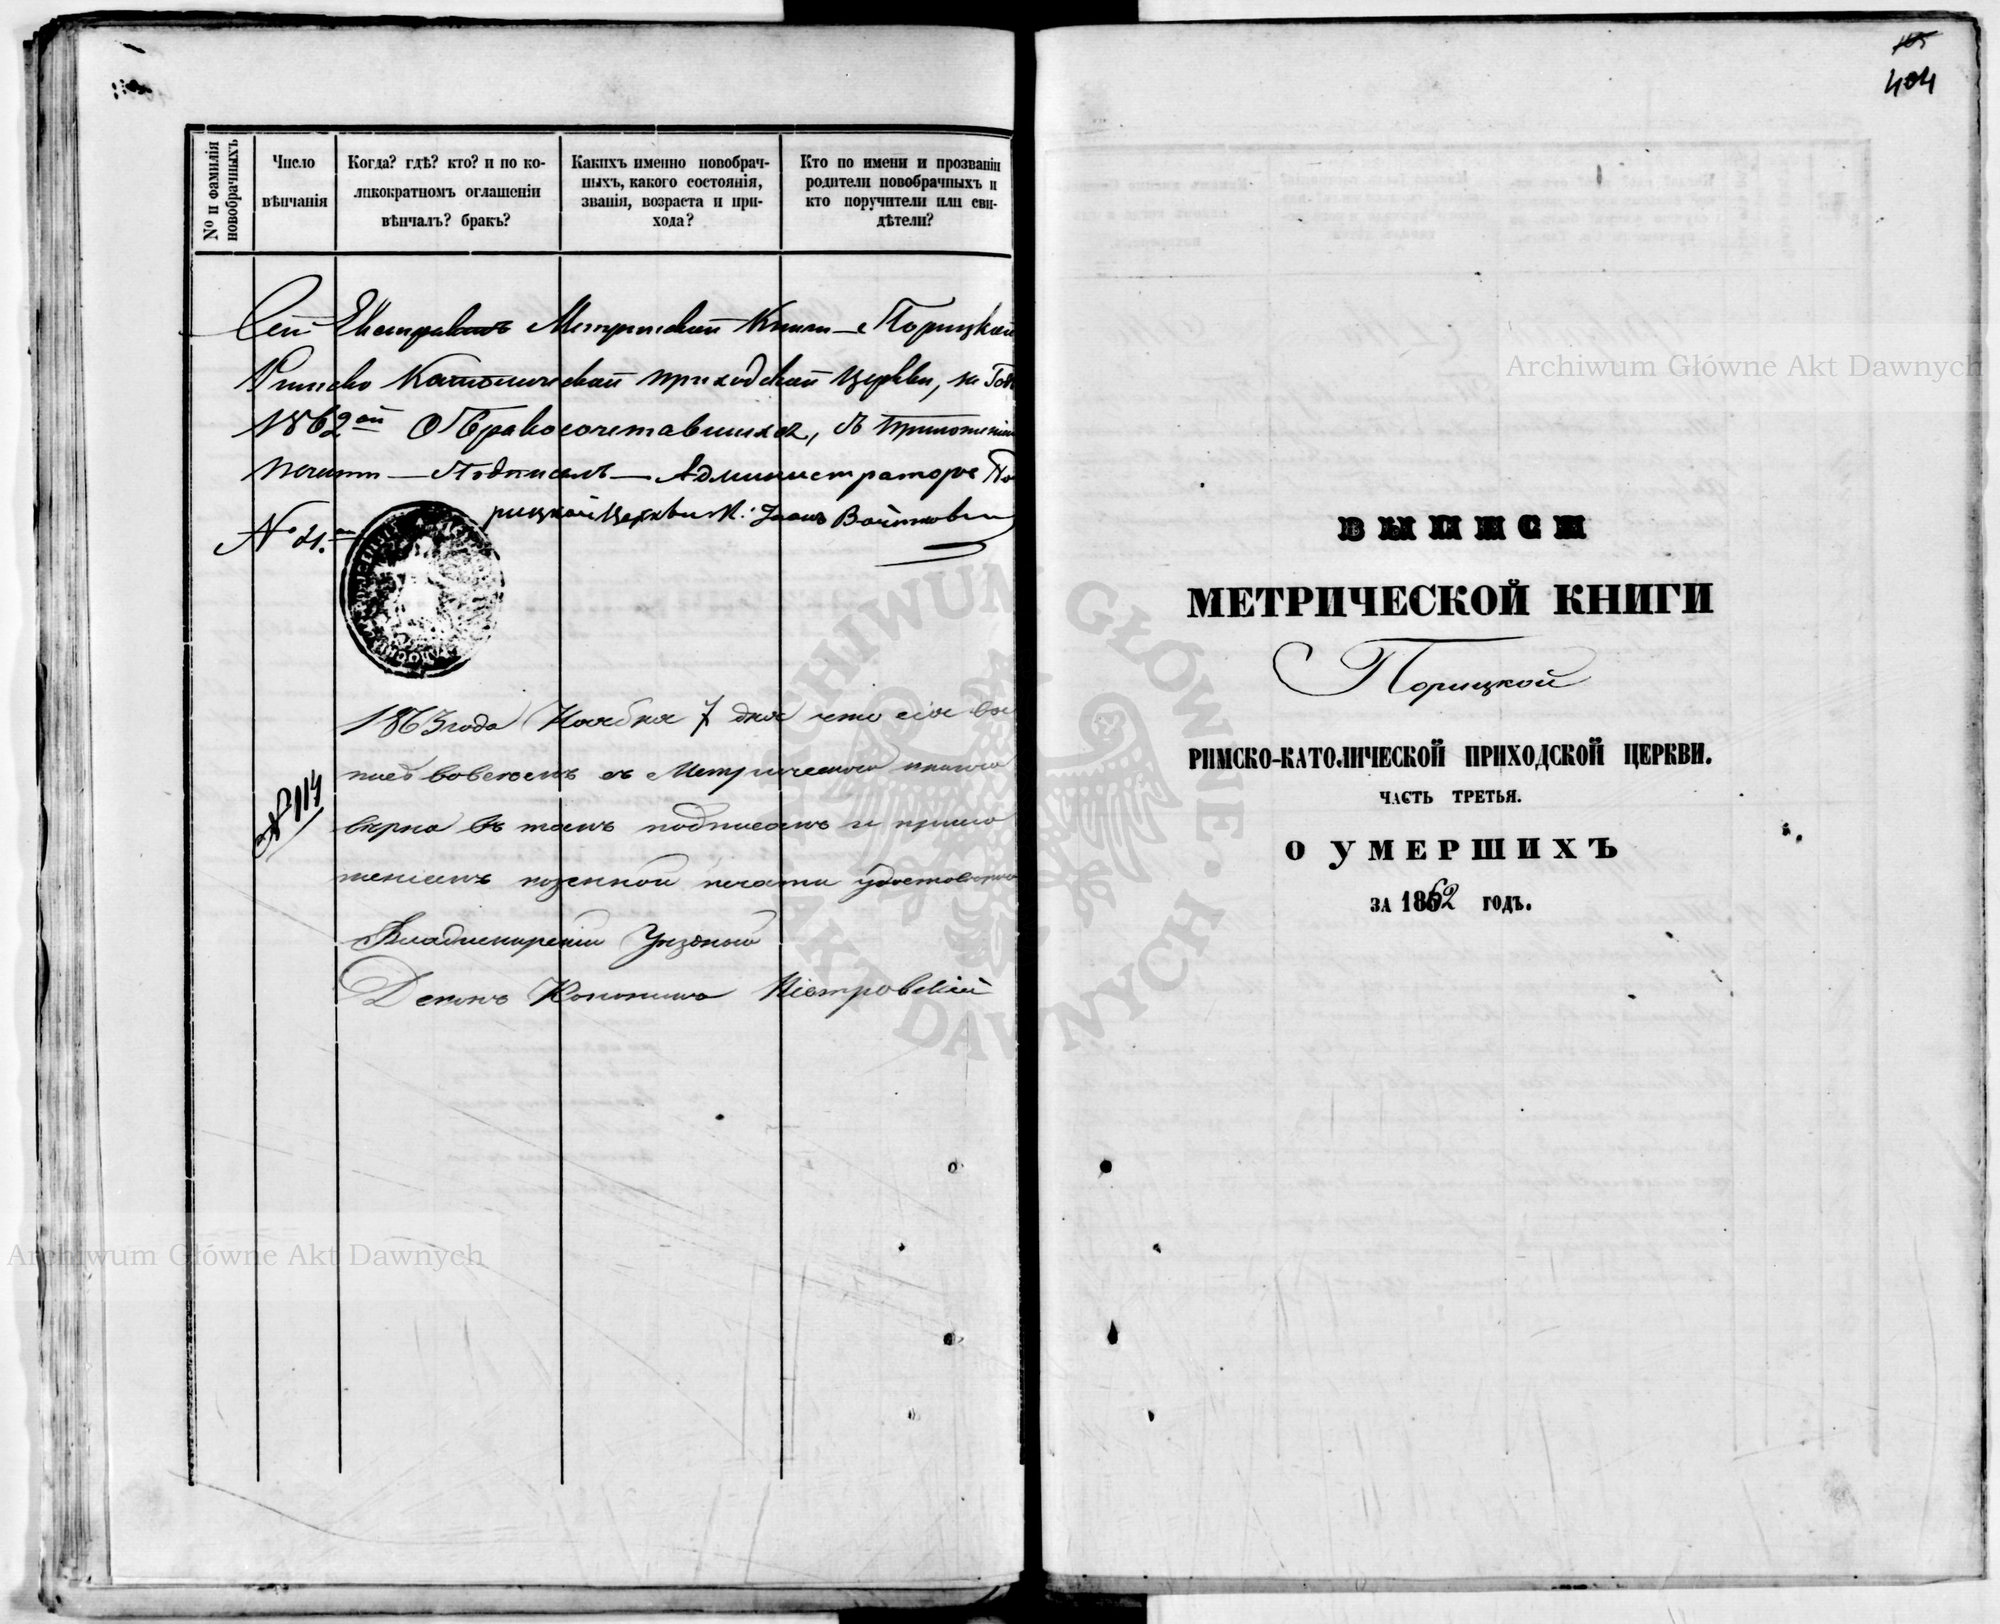 № и фамилія новобрачныхъ
Число вѣнчанія
Когда? гдѣ? кто? и по ко-
ликократномъ оглашеніи
вѣнчалъ? бракъ?
Какихъ именно новобрач-
ныхъ, какого состоянія,
званія, возраста и при-
хода?
Кто по имени и прозванію
родители новобрачныхъ и
кто поручители или сви-
дѣтели?
Сей Екстрактъ Метрической Книги Порицкой
Римско Католической приходской Церкви, за Годъ
1862ой О Бракосочетавшихся, съ приложеніемъ
печати Подписалъ Администраторъ По
рицкой Церкви К: Іоанъ
№ 21.
1863 года Ноября 7 дня что сія вы
пись во всемъ съ Метрическою книгою
вѣрна въ томъ подписомъ и прило
женіемъ казенной печати удостовѣряю
№ 114
Владимирскій Уѣздный
Деканъ Каноникъ Піотровскій
404
ВЫПИСИ
МЕТРИЧЕСКОЙ КНИГИ
Порицкой
РИМСКО-КАТОЛИЧЕСКОЙ ПРИХОДСКОЙ ЦЕРКВИ.
ЧАСТЬ ТРЕТЬЯ.
О УМЕРШИХЪ
ЗА 1862 ГОДЪ.
Archiwum Główne Akt Dawnych
Archiwum Główne Akt Dawnych
ARCHIWUM GŁÓWNE AKT DAWNYCH